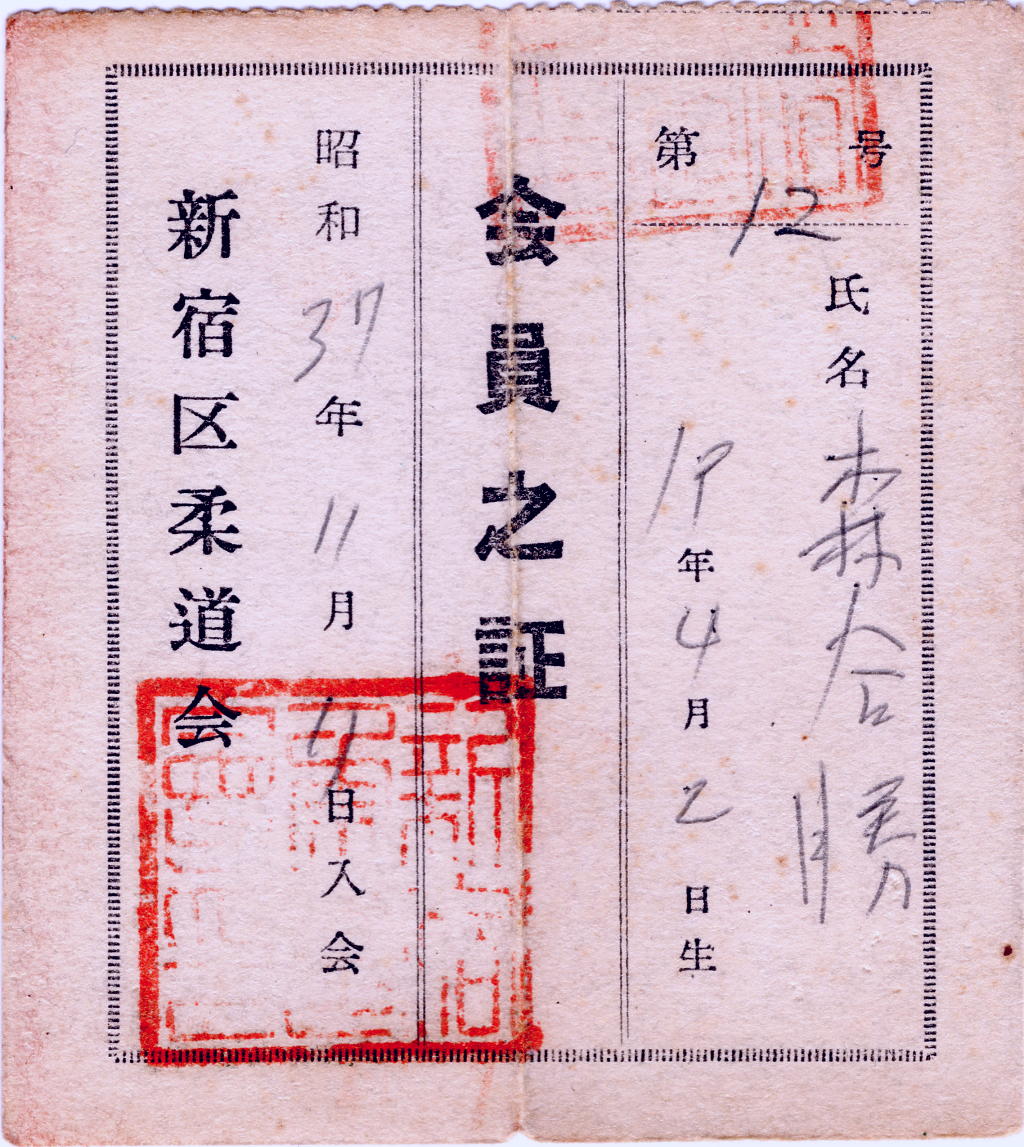 第12号
氏名 森合勝
19年4月2日生
会員之証
昭和37年11月11日入会
新宿区柔道会